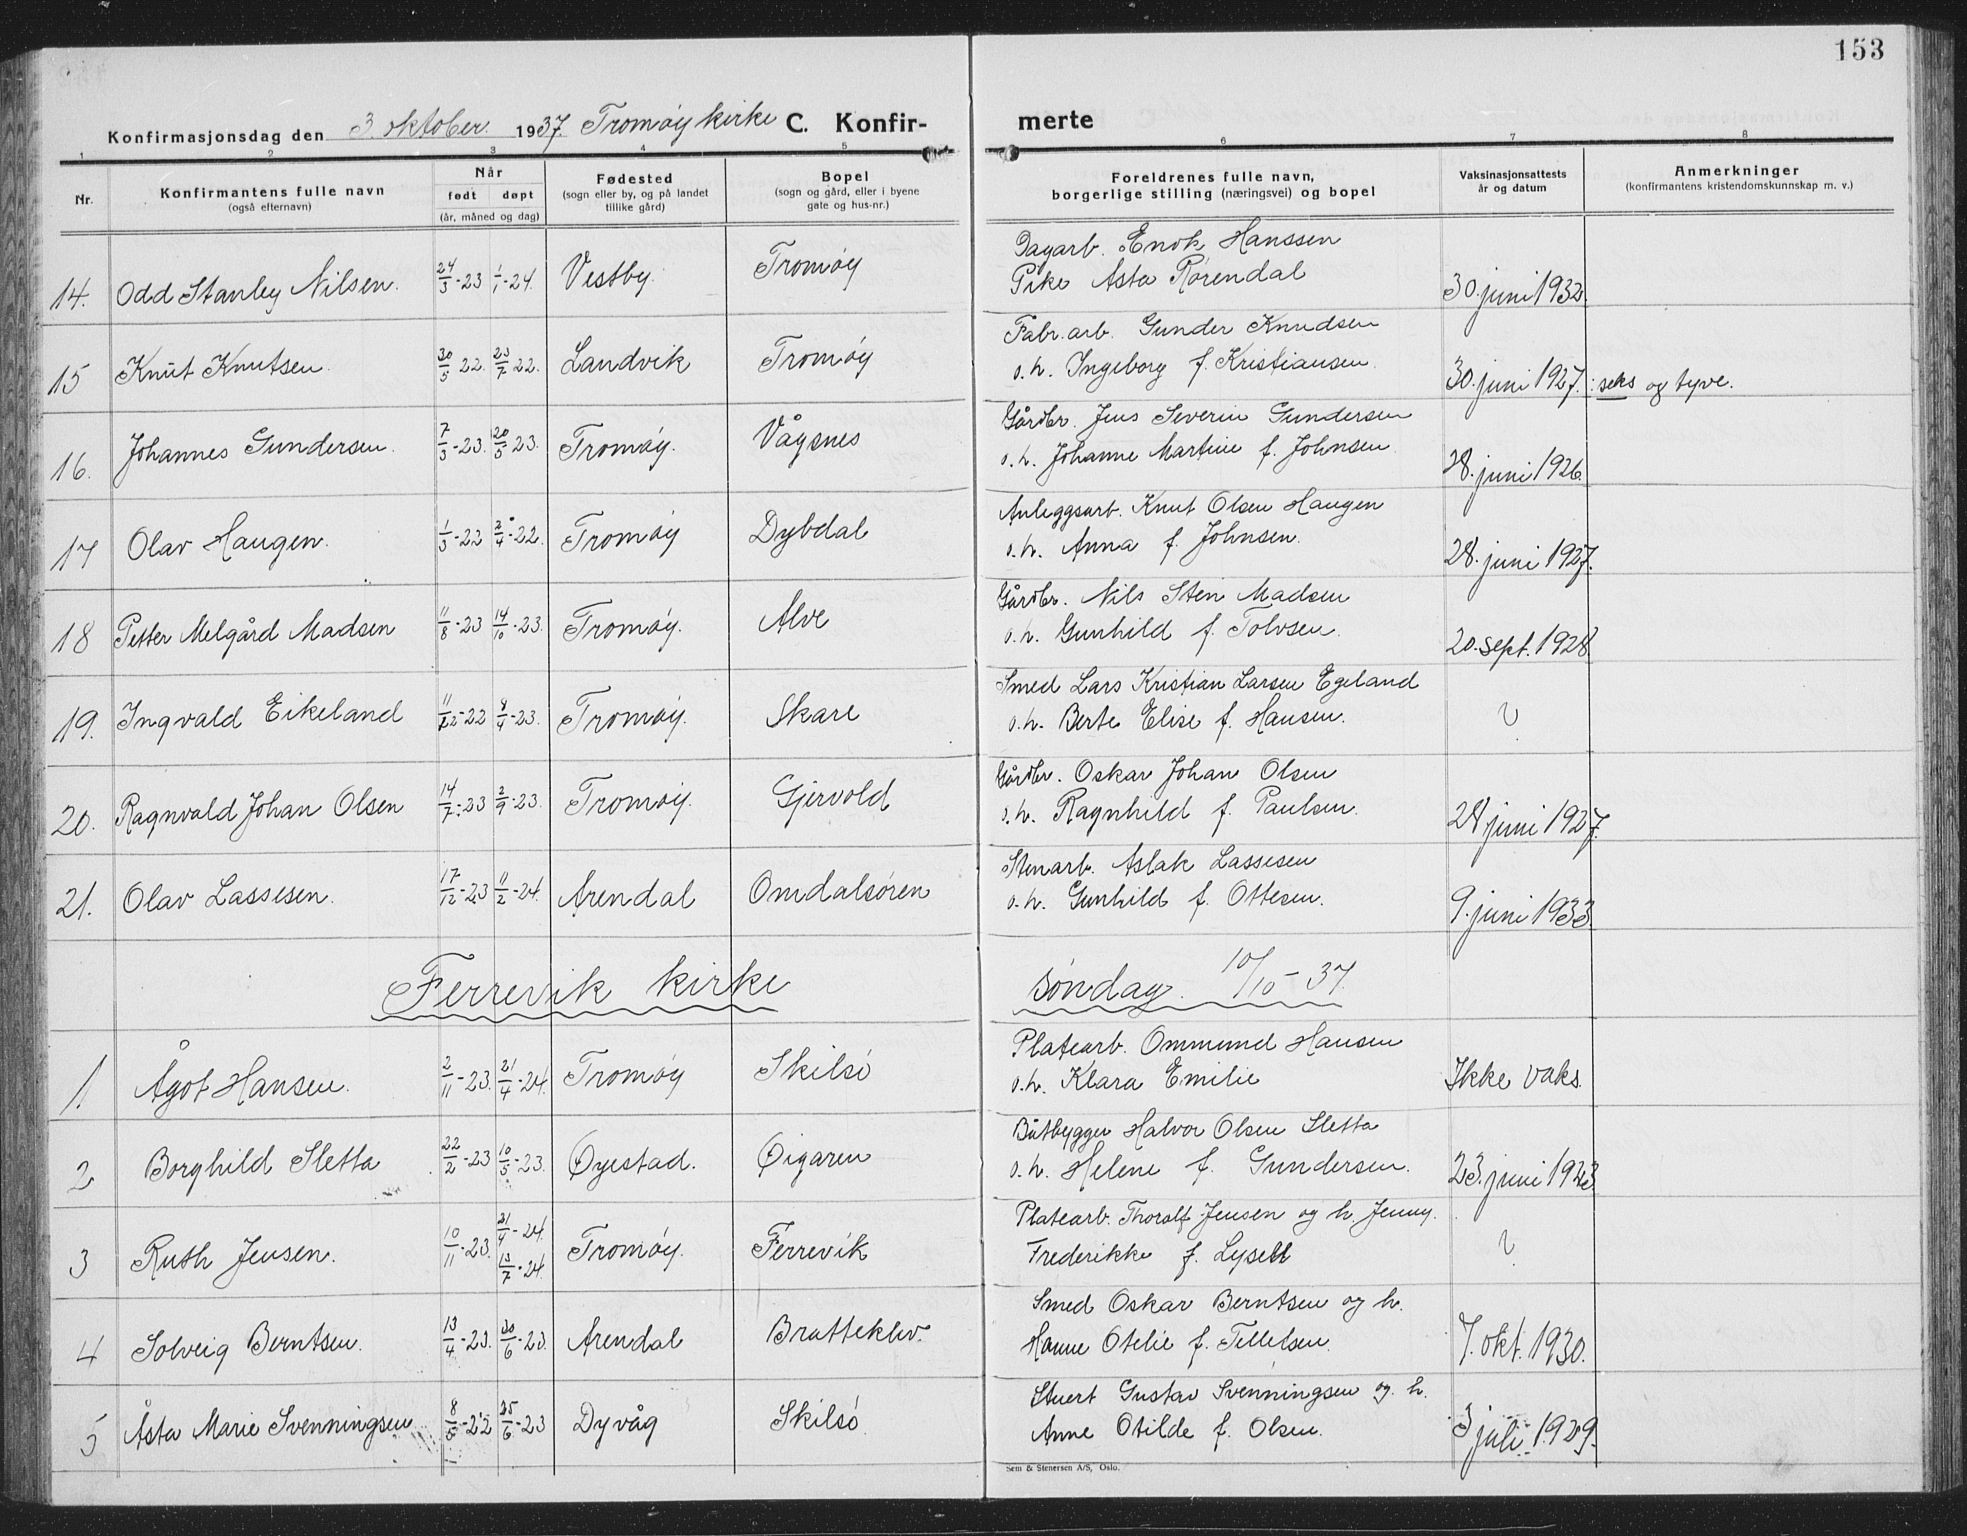 153
Konfirmasjonsdag den 3 oktober 1937. Tromøy kirke C. Konfirmerte
1 2 3 4 5 6 7 8
Nr. Konfirmantens fulle navn (også efternavn) Når født døpt (år, måned og dag) Fødested (sogn eller by, og på landet tillike gård) Bopel (sogn og gård, eller i byene gate og hus-nr.) Foreldrenes fulle navn, borgerlige stilling (næringsvei) og bopel Vaksinasjonsattests år og datum Anmerkninger (konfirmantens kristendomskunnskap m. v.)
14. Odd Stanley Nilsen. 24/3-23 1/1-24. Vestby. Tromøy Dagarb. Enok Hanssen
Pike Asta Rørendal 30. juni 1932.
15 Knut Knutsen. 30/5 22. 23/7 22. Landvik Tromøy Fabr. arb. Gunder Knudsen
o. h. Ingeborg f. Kristiansen. 30. juni 1927. : seks og tyve.
16. Johannes Gundersen. 7/3-23. 20/5-23. Tromøy. Vågsnes Gårdbr. Jens Severin Gundersen
o. h. Johanne Martine f. Johnsen. 28. juni 1926.
17 Olav Haugen. 1/3-22 2/4-22. Tromøy Dybdal Anleggsarb. Knut Olsen Haugen
o. h. Anna f. Johnsen. 28. juni 1927.
18 Petter Melgård Madsen 11/8-23 14/10-23. Tromøy. Alve Gårdbr. Nils Sten Madsen
o. h. Gunhild f. Tolvsen. 20. sept. 1928
19. Ingvald Eikeland 11/12-22 8/4-23. Tromøy. Skare Smed Lars Kristian Larsen Egeland
o. h. Berte Elise f. Hansen. ?
20. Ragnvald Johan Olsen 14/7-23 2/9-23. Tromøy. Gjervold Gårdbr. Oskar Johan Olsen
o. h. Ragnhild f. Paulsen. 28 juni 1927.
21. Olav Lassesen. 17/12-23 11/2-24. Arendal Omdalsøren Stenarb. Aslak Lassesen
o. h. Gunhild f. Ottesen. 9. juni 1933.
Færrevik kirke søndag. 10/10-37.
1. Ågot Hansen. 2/11-23. 21/4-24. Tromøy Skilsø Platearb. Ommund Hansen
o. h. Klara Emilie Ikke vaks.
2 Borghild Sletta 22/2-23 10/5-23. Øyestad. Øigaren Båtbygger Halvor Olsen Sletta
o. h. Helene f. Gundersen. 23. juni 1923
3 Ruth Jensen. 10/11-23. 21/4-24. 13/7-24. Tromøy. Færrevik Platearb. Thoralf Jensen og h. Jenny
Frederikke f. Lysell ?
4 Solveig Berntsen. 13/4-23. 30/6-23 Arendal Bratteklev. Smed Oskar Berntsen og h.
Hanne Otelie f. Tellefsen. 7. okt. 1930.
5 Åsta Marie Svenningsen 8/5-22 25/6-23 Dyvåg Skilsø Stuert Gustav Svenningsen og. h.
Anne Otilde f. Olsen. 3 juli 1929.
Sem & Stenersen A/S, Oslo.